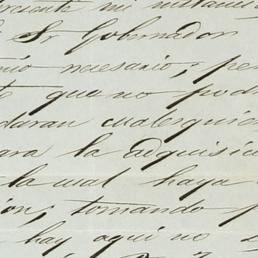 mi
Sr Gobernador
necesario; pe
que no pod
daran cualesquie
ara la adquisic
la cual haya
ion, tomando p
hay aqui no s